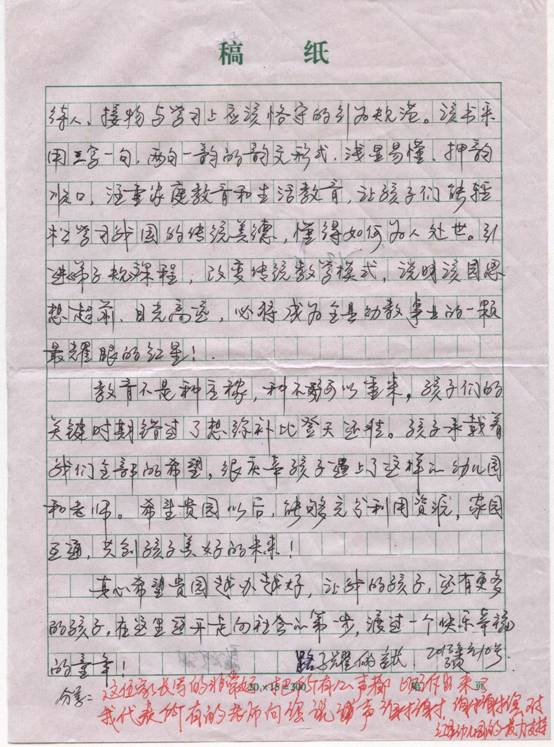 稿 纸
待人、接物与学习上应该恪守的行为规范。该书采
用三字一句,两句一韵的韵文形式,浅显易懂,押韵
顺口,注重家庭教育和生活教育,让孩子们能轻
松学习我国的传统美德,懂得如何为人处世。引
进弟子规课程,改变传统教学模式,说明该园思
想超前,目光高远,必将成为全县幼教事业的一颗
最耀眼的红星!
教育不是种庄稼,种不好可以重来,孩子们的
关键时期错过了想弥补比登天还难。孩子承载着
我们全部的希望,很庆幸孩子遇上了这样的幼儿园
和老师。希望贵园以后,能够充分利用资源,家园
互通,共创孩子美好的未来!
真心希望贵园越办越好,让我的孩子,还有更多
的孩子,在这里迈开走向社会的第一步,渡过一个快乐幸福
的童年!
分享:这位家长写的非常好,把所有的心声都
我代表所有的老师向您说声谢谢!谢谢您对
幼儿园的大力支持